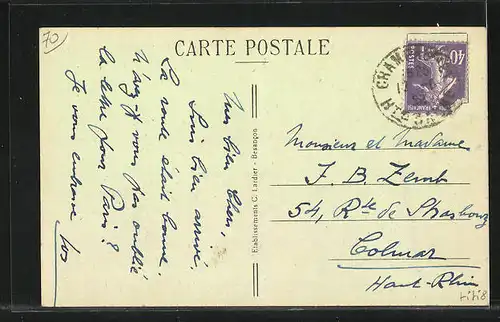 70
CARTE POSTALE
Mes bien chers,
Suis bien arrivé.
La route était bonne.
N'avez-vous pas oublié
la lettre pour Paris?
Je vous embrasse
Etablissements C. Lardier - Besançon
40
POSTES
Monsieur et Madame
J. B. Zemb
54, Rte de Strasbourg
Colmar
Haut-Rhin